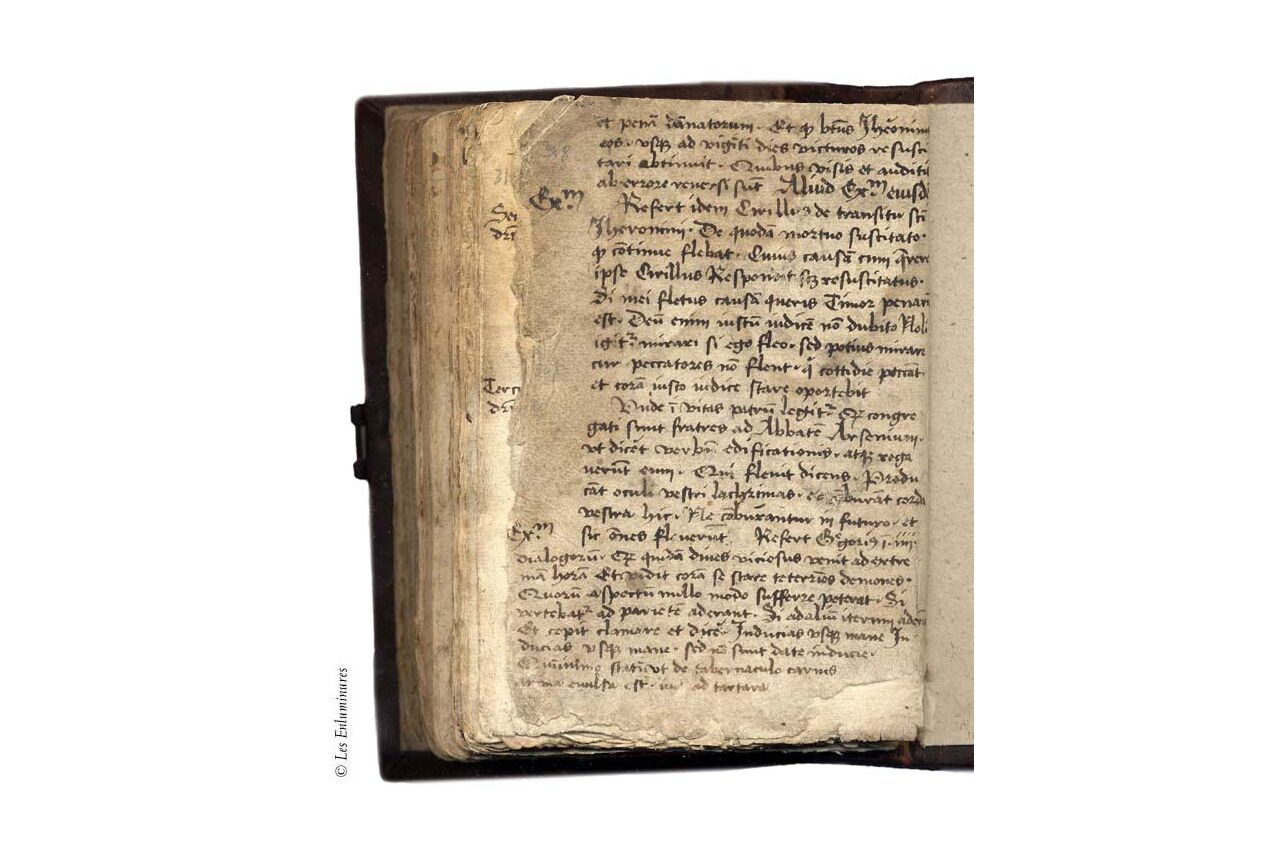 et penā dānatorum · Et qͥ btūs Jheronim
eos · vsqꝫ ad viginti dies victuros resusci
tari obtinuit · Quibus visis et auditis
ab errore reuersi sūt Aliud Exᵐ eiusdē
Refert idem Cirillus de transitu sci
Jheronimi · De quodā mortuo suscitato ·
qͥ cōtinue flebat · Cuius causā cum q̄rere
ipse Cirillus Respondit sꝫ resuscitatus ·
Si mei fletus causā queris Timor penarū
est · Deū enim iustū iudicē nō dubito Noli
igitᷣ mirari si ego fleo · sed potius mirare
cur peccatores nō flent · qͥ cottidie peccāt ·
et corā iusto iudice stare oportebit
Vnde ī vitas patrū legitᷣ qꝫ congre
gati sunt fratres ad Abbatē Arsenium ·
vt dicēt verbū edificationis · atqꝫ roga
uerūt eum · Qui fleuit dicens · Produ
cāt oculi vestri lachrimas · et cōburāt corda
vestra hic · Ne cōburantur in futuro · et
sic ōnes fleuerūt Refert Gregoriꝰ ī · iiii ·
dialogorū · qꝫ quidā diues viciosus venit ad extre
mā horā Et vidit corā se stare teterrios demones ·
Quorū aspectum nullo modo sufferre poterat · Si
vertebatᷣ ad parietē aderant · Si ad aliū iterum aderāt
Et cepit clamare et dicē Inducias vsqꝫ mane In
ducias vsqꝫ mane · sed nō sunt date inducie ·
statī vt de tabernaculo carnis
euulsa est · ad tartara
Exᵐ
Exᵐ
Terci
31
© Les Enluminures